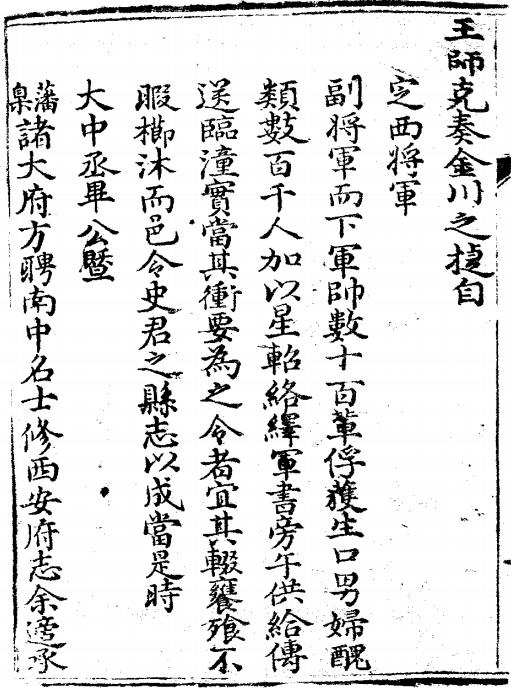 王師克奏金川之捷自
定西將軍
副將軍而下軍帥數十百輩俘獲生口男婦醜
類數百千人加以星軺絡繹軍書旁午供給傳
送臨潼實當其衝要為之令者宜其輟饔飧不
暇櫛沐而邑令史君之縣志以成當是時
大中丞畢公暨
藩臬諸大府方聘南中名士修西安府志余適承